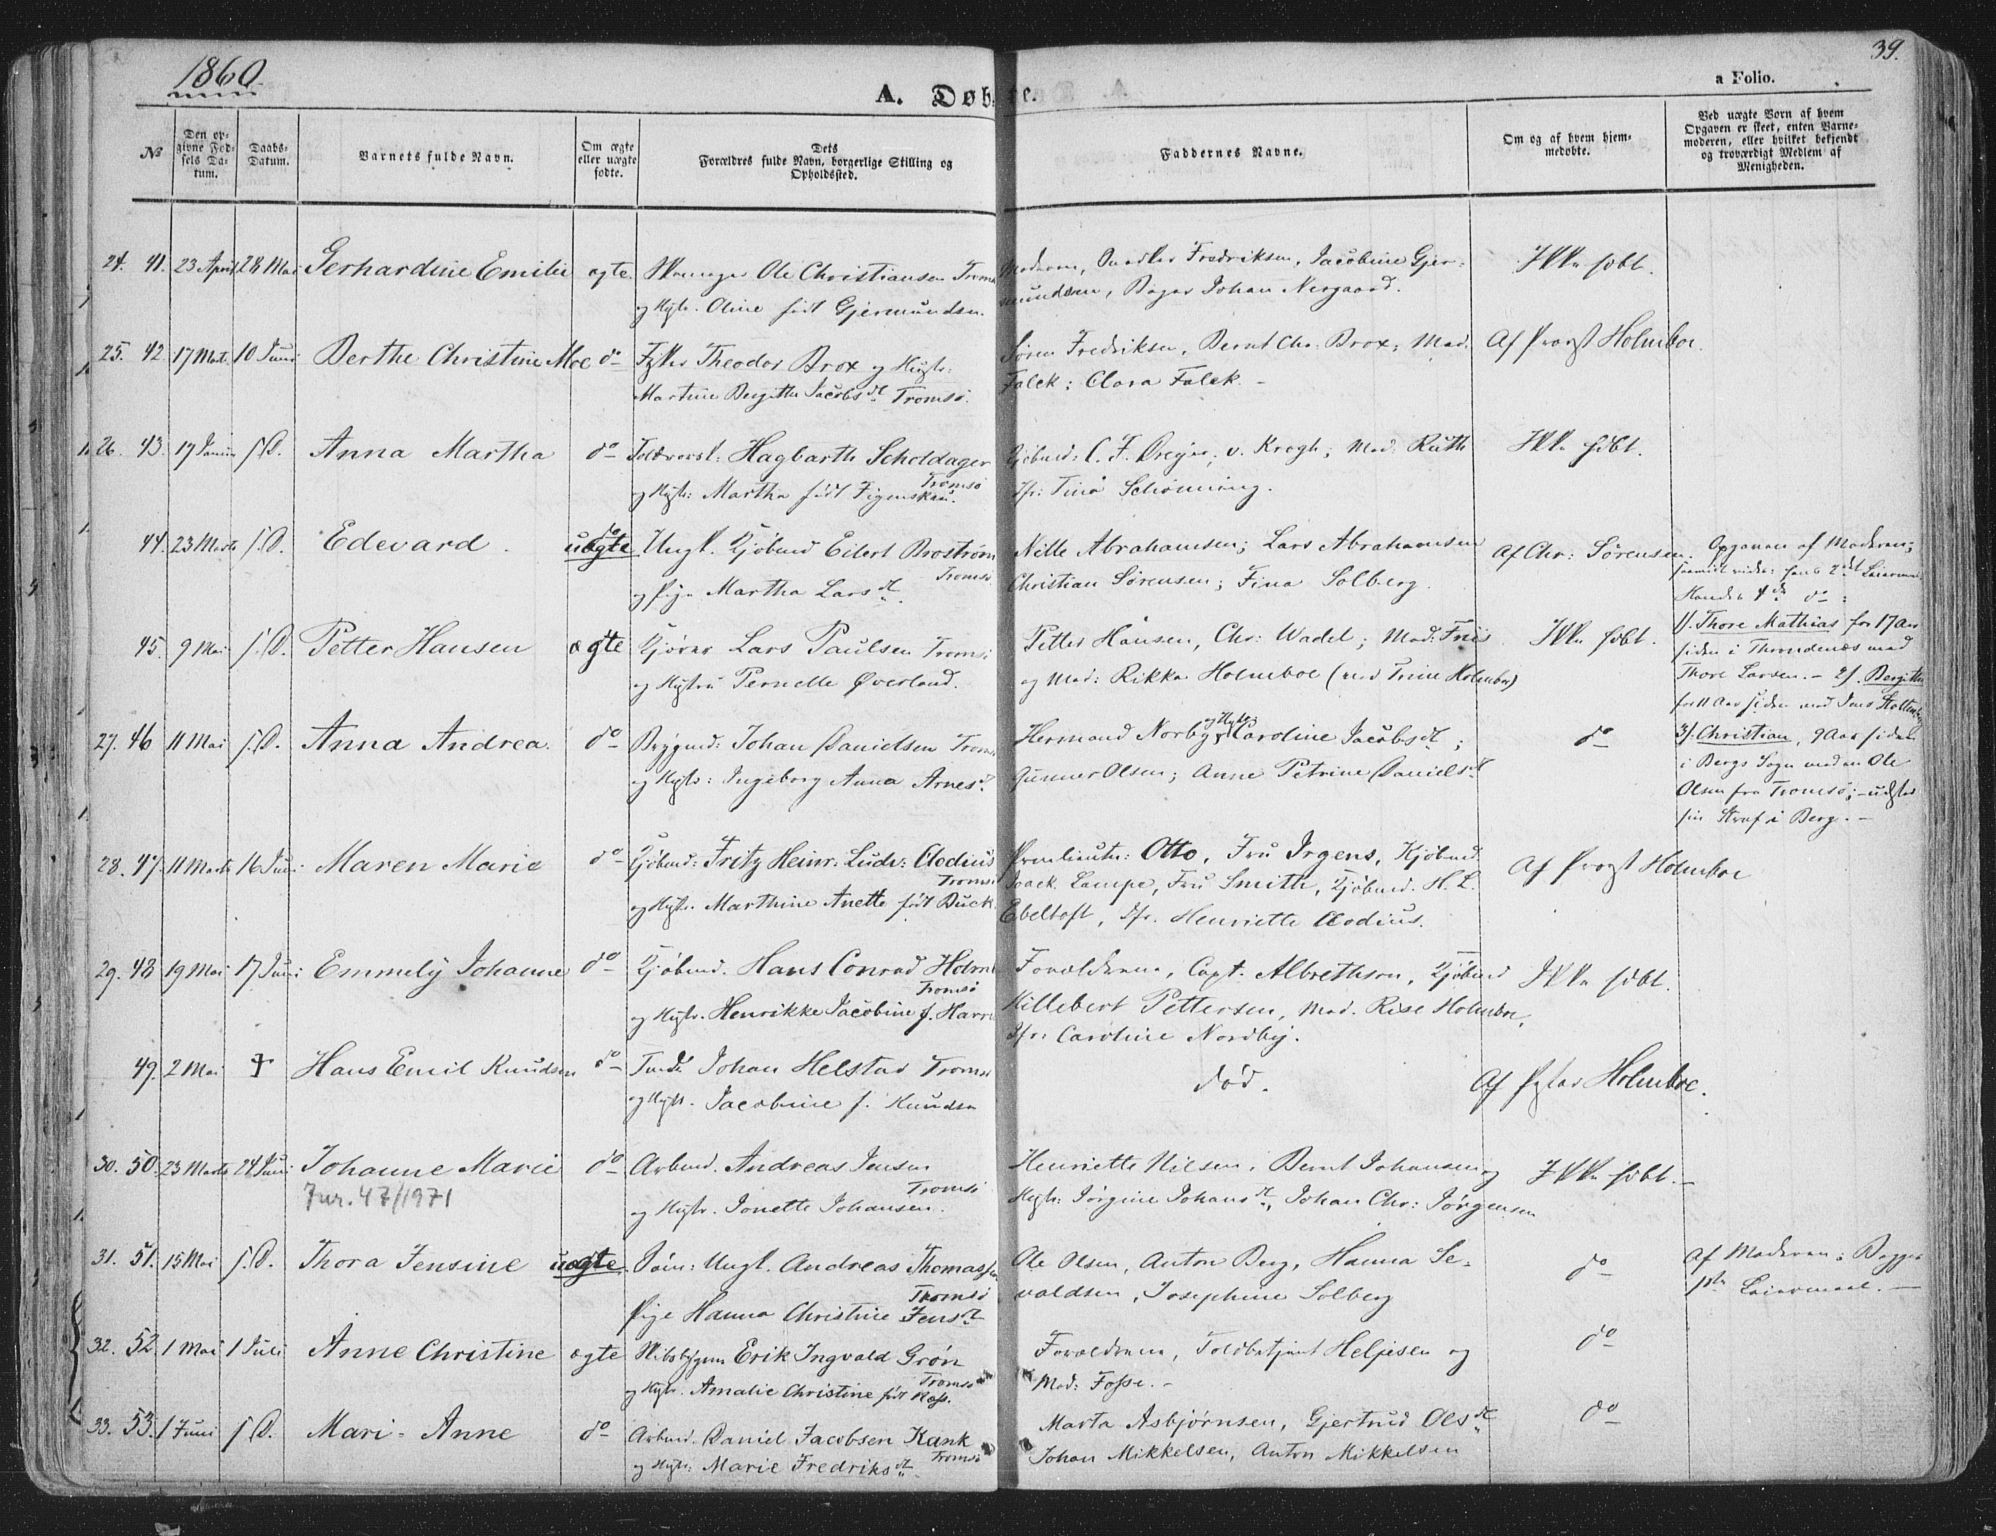 1860.
39.
A. Døbte.
a Folio.
No
Den opgivne Fødsels Datum.
Daabs-Datum.
Barnets fulde Navn.
Om ægte eller uægte fødte.
Dets Forældres fulde Navn, borgerlige Stilling og Opholdssted.
Faddernes Navne.
Om og af hvem hjemmedøbte.
Ved uægte Børn af hvem Opgaven er skeet, enten Barnemoderen, eller hvilket bekjendt og troværdigt Medlem af Menigheden.
24. 41. 23 April 28 Mai Gerhardine Emilie ægte Ole Christiansen Tromsø Moderen, Fredriksen, Jacobine Gjer-
og Hustr. Oline født Gjermundsen. mundsen, Bager Johan Nergaard.
Ikke døbt.
25. 42 17 Marts 10 Juni Berthe Christine Moe do Theodor Brox og Hustr: Søren Fredriksen, Bernt Chr. Brox; Mad. Af Provst Holmboe.
Martine Bergitte Jacobsdt. Tromsø. Falck; Clara Falck.
26. 43. 17 s. D. Anna Martha do Hagbarth Scholdager Kjøbmd: C. F. Dreyer, v. Krogh; Mad: Ruth Ikke døbt.
Tromsø
og Hustr: Martha født Figenskau. Jfr: Tina Schønning.
44. 23 Marts s. D. Edevard. uægte Ungk. Kjøbmd Eilert Brostrøm Nille Abrahamsen; Lars Abrahamsen Af Chr: Sørensen. Opgaven af Moderen;
Tromsø
og Pige Martha Larsdt. Christian Sørensen; Fina Solberg.
45. 9 Mai s. D. Petter Hansen ægte Lars Paulsen Tromsø Petter Hansen, Chr: Wadel; Mad: Friis Ikke døbt. 1). Thore Mathias for 17 Aar
siden i Throndenæs med
og Hustru Pernelle Øverland. og Mad: Rikke Holmboe (ved Trine Holmboe) Thore Larsen. - 2). Bergitte
for 11 Aar siden med Jens
27. 46 11 Mai s. D. Anna Andrea. do Bygmd: Johan Danielsen Tromsø Hermand Norby og Hustr: Caroline Jacobsdt; do 3). Christian, 9 Aar siden
i Bergs Sogn med en Ole
og Hustr: Ingeborg Anna Arnesdt. Gunner Olsen; Anne Petrine Danielsdt Olsen fra Tromsø;
sin Straf i Berg. -
28. 47. 11 Marts 16 Juni Maren Marie do Kjøbmd: Fritz Heinr: Ludv: Clodius Premlieutn: Otto, Fru Irgens, Kjøbmd. Af Provst Holmboe
Tromsø
og Hustr. Marthine Anette født Buck. Joack. Lampe, Fru Smith, Kjøbmd. H. L.
Ebeltoft, Jfr. Henriette Clodius.
29. 48 19 Mai 17 Juni Emmely Johanne do Kjøbmd. Hans Conrad Holmboe Forældrene, Capt. Albrethson, Kjøbmd Ikke døbt.
Tromsø
og Hustr. Henrikke Jacobine f. Harris Hillebert Pettersen, Mad. Rise Holmboe,
Jfr: Caroline Nordby.
49. 2 Mai † Hans Emil Knudsen do Johan Helstad Tromsø død. Af Holmboe.
og Hustr. Jacobine f. Knudsen
30. 50. 23 Marts 24 Juni. Johanne Marie do Arbmd. Andreas Jensen Henriette Nilsen, Bernt Johansen og Ikke døbt. -
Jur. 47/1971
Tromsø
og Hustr. Jonette Johansen. Hustr: Jørgine Johansdt., Johan Chr: Jørgensen
31. 51. 15 Mai s. D. Thora Jensine uægte. Ungk. Andreas Thomassen Ole Olsen, Anton Berg, Hanna Se- do Af Moderen; Begges
Tromsø
Pige Hanna Christine Jensdt valdsen, Josephine Solberg 1ste Leiermaal. -
32. 52. 1 Mai 1 Juli Anne Christine ægte Skibsbygm. Erik Ingvald Grøn Forældrene, Toldbetjent Heljesen og do
Tromsø
og Hustr. Amalie Christine født Ross. Mad: Fosse. -
33. 53. 1 Juni s. D. Mari-Anne do Arbmd. Daniel Jacobsen Kank Marta Asbjørnsen, Gjertrud Olsdt. do
Tromsø
og Hustr: Marie Fredriksdt. Johan Mikkelsen, Anton Mikkelsen